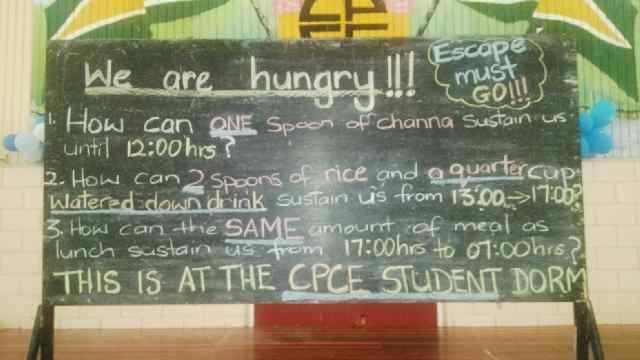 We are hungry!!!
Escape
must
GO!!!
1. How can ONE Spoon of channa sustain us
until 12:00hrs?
2. How can 2 spoons of rice and a quarter cup
watered down drink sustain us from 13:00→17:00?
3. How can the SAME amount of meal as
lunch sustain us from 17:00hrs to 07:00hrs?
THIS IS AT THE CPCE STUDENT DORM